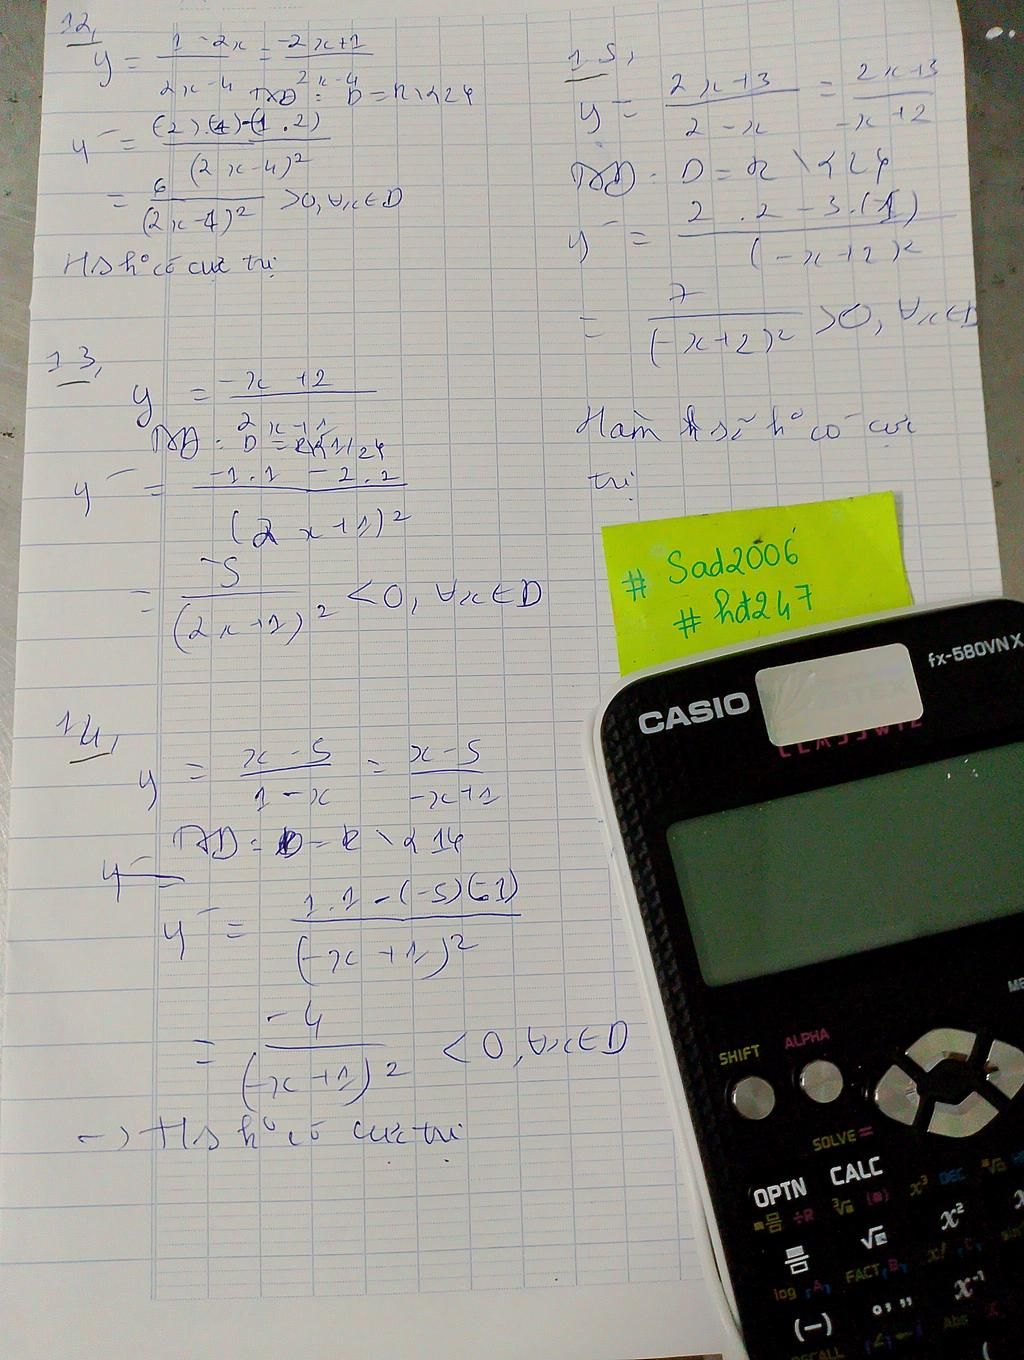 12,
y = (1 - 2x)/(2x - 4) = (-2x + 1)/(2x - 4)
TXD : D = R \ {2}
y' = ((2).(4) - (1.2))/(2x - 4)²
= 6/(2x - 4)² > 0, ∀x ∈ D
HS k° có cực trị
13,
y = (-x + 2)/(2x + 1)
y' = (-1.1 - 2.2)/(2x + 1)²
= -5/(2x + 1)² < 0, ∀x ∈ D
14,
y = (x - 5)/(1 - x) = (x - 5)/(-x + 1)
TXD = D = R \ {1}
y'
y' = (1.1 - (-5)(-1))/(-x + 1)²
= -4/(-x + 1)² < 0, ∀x ∈ D
-> HS k° có cực trị
15,
y = (2x + 3)/(2 - x) = (2x + 3)/(-x + 2)
TXD : D = R \ {2}
y' = (2.2 - 3.(-1))/(-x + 2)²
= 7/(-x + 2)² > 0, ∀x ∈ D
Hàm số k° có cực
trị
# Sad2006
# hđ247
CASIO
fx-580VN X
CLASSWIZ
SHIFT
ALPHA
SOLVE =
OPTN
CALC
÷R
x³
DEC
√
x²
log
FACT
B
(-)
° , ,,
x⁻¹
Abs